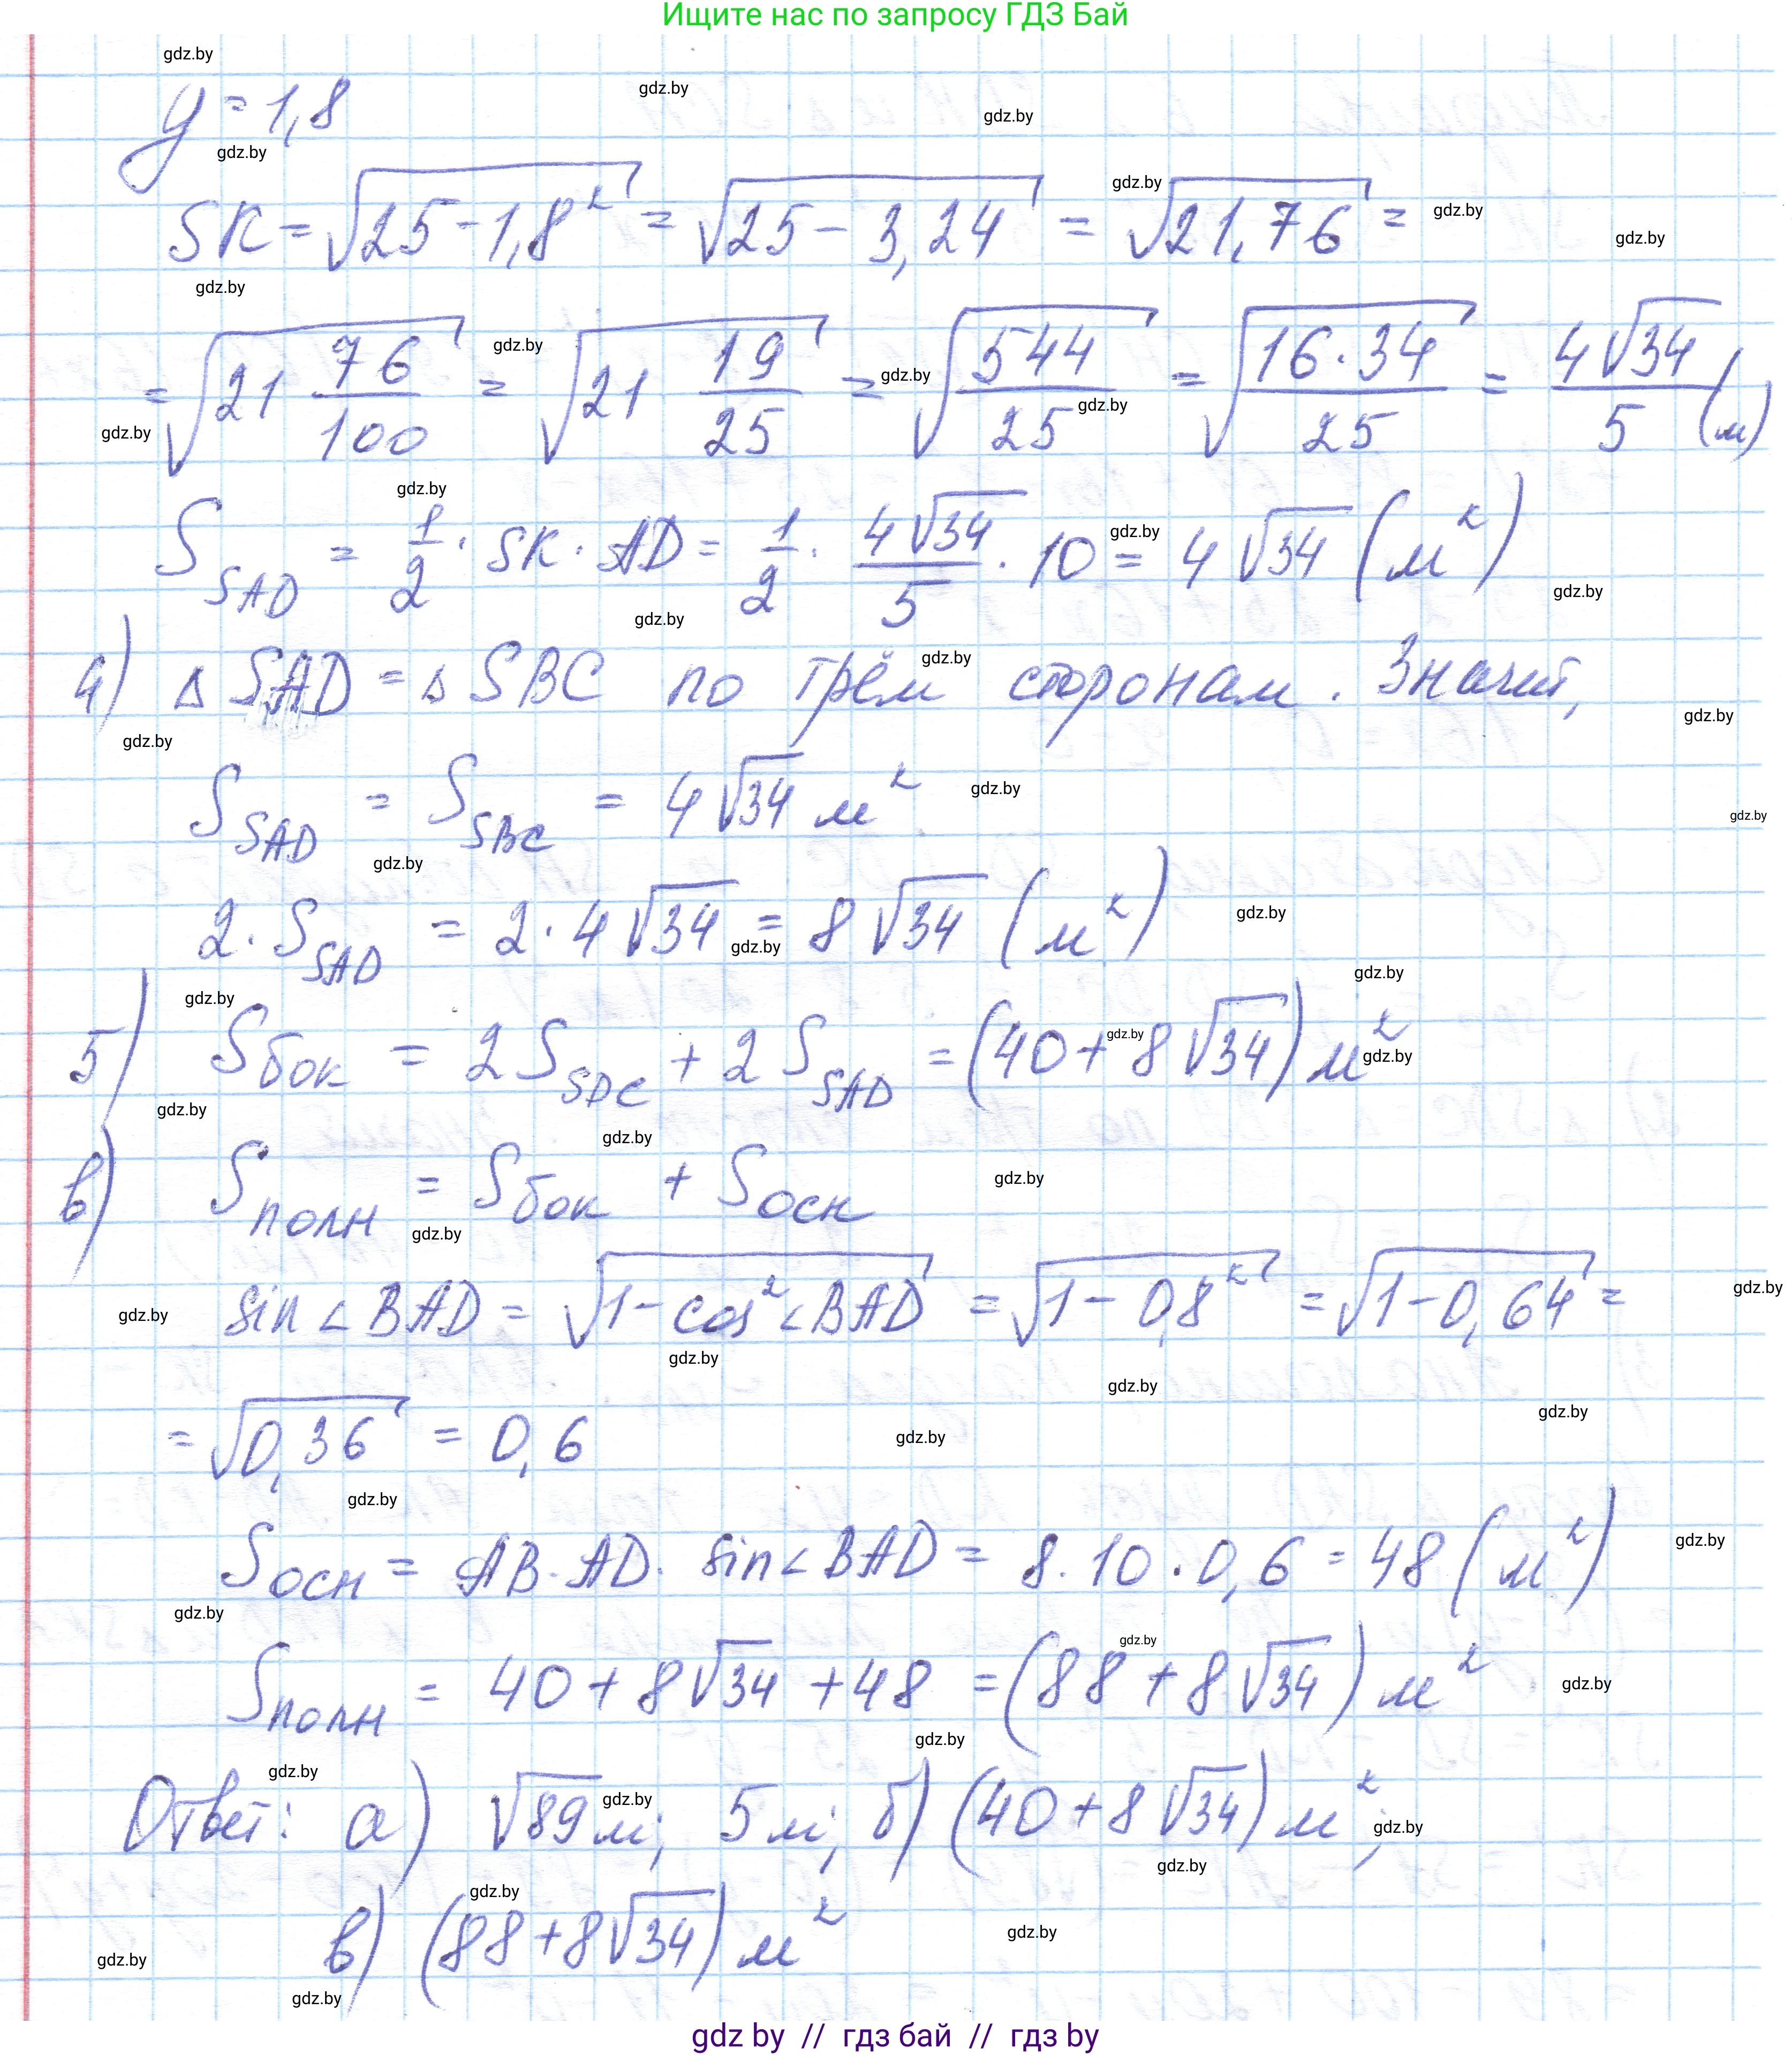 Ищите нас по запросу ГДЗ Бай
y = 1,8
SK = √(25 - 1,8²) = √(25 - 3,24) = √(21,76) =
= √(21 76/100) = √(21 19/25) = √(544/25) = √(16·34/25) = 4√34/5 (м)
S_SAD = 1/2 · SK · AD = 1/2 · 4√34/5 · 10 = 4√34 (м²)
4) Δ SAD = Δ SBC по трём сторонам. Значит,
S_SAD = S_SBC = 4√34 м²
2 · S_SAD = 2 · 4√34 = 8√34 (м²)
5) S_бок = 2 S_SDC + 2 S_SAD = (40 + 8√34) м²
в) S_полн = S_бок + S_осн
sin∠BAD = √(1 - cos²∠BAD) = √(1 - 0,8²) = √(1 - 0,64) =
= √(0,36) = 0,6
S_осн = AB · AD · sin∠BAD = 8 · 10 · 0,6 = 48 (м²)
S_полн = 40 + 8√34 + 48 = (88 + 8√34) м²
Ответ: а) √89 м; 5 м; б) (40 + 8√34) м²;
в) (88 + 8√34) м²
gdz by // гдз бай // гдз by